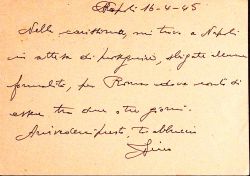 Napoli 16-4-45
carissima, mi trovo a Napoli
in attesa di proseguire, sbrigate alcune
formalità, per Roma dove conto di
essere tra due o tre giorni.
Arrivederci presto, ti abbraccio